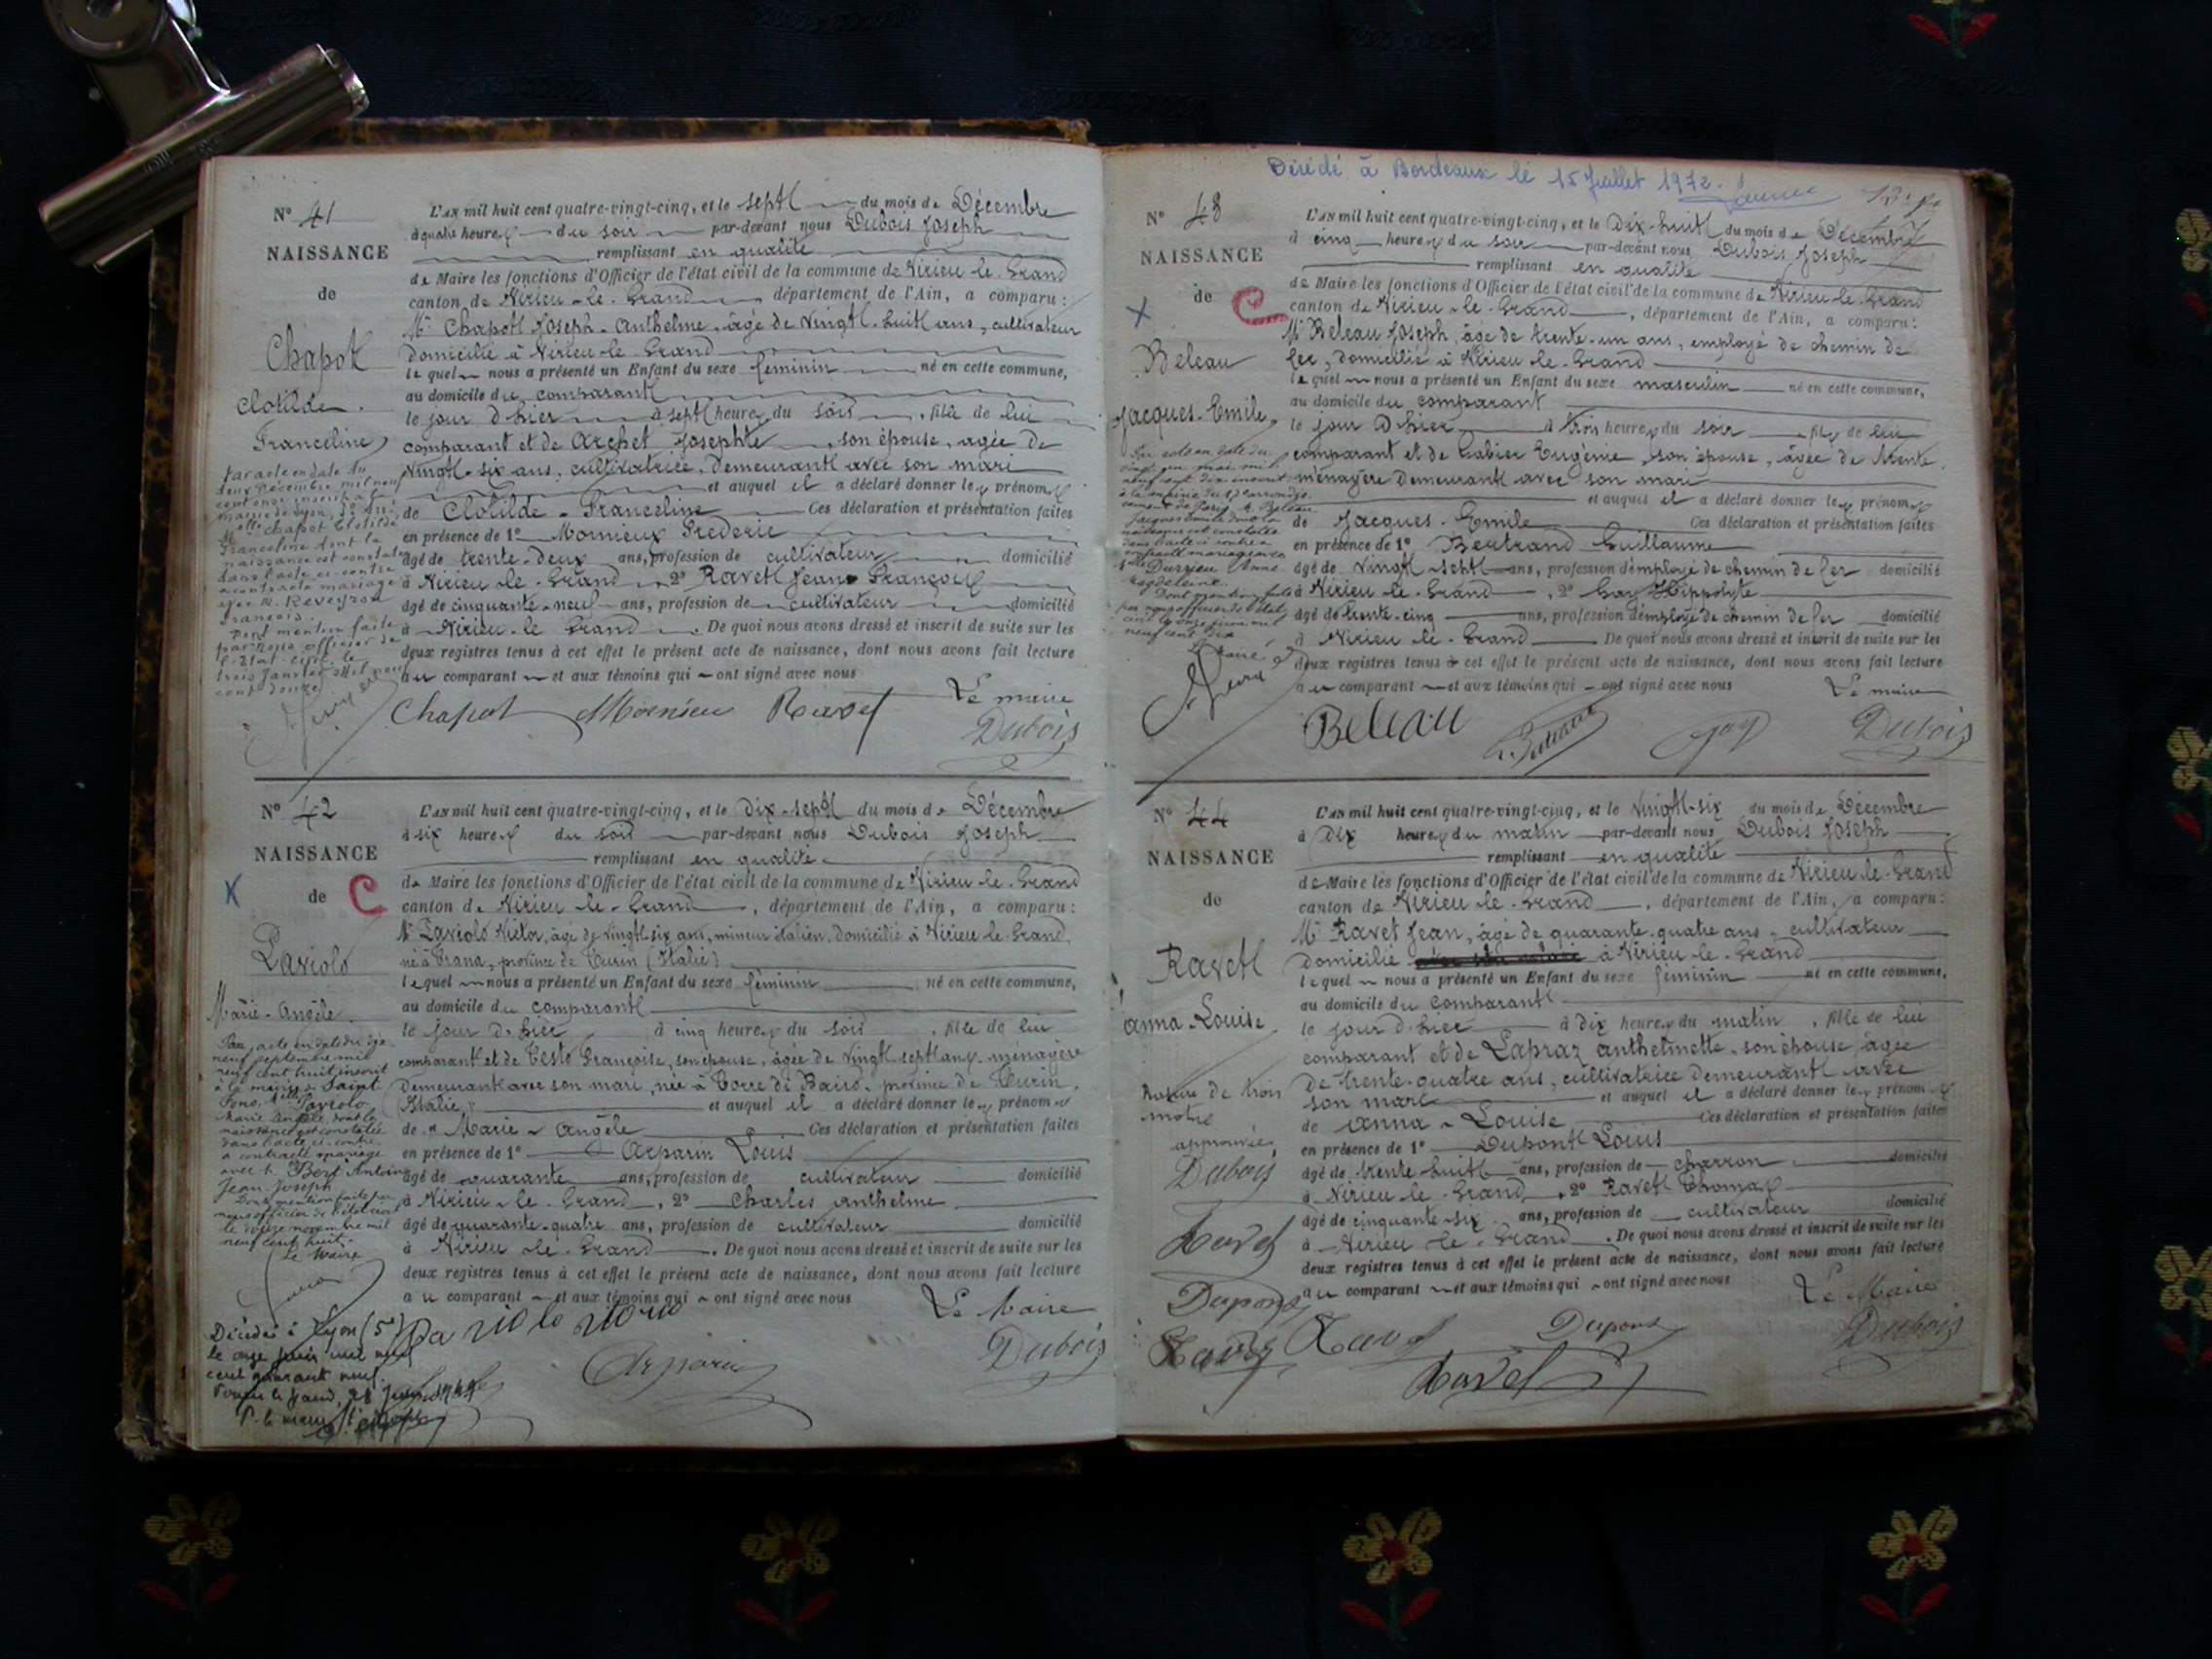 N° 41
NAISSANCE
de
Chapot
Clotilde
Franceline
Par acte en date du
deux Décembre mil neuf
cent onze inscrit à la
mairie de Lyon,
Mlle Chapot Clotilde
Franceline dont la
naissance est constatée
dans l'acte ci-contre
a contracté mariage
avec M. Reveyron
François.
Dont mention faite
par nous officier de
l'état-civil le
trois Janvier mil neuf
cent douze
L'AN mil huit cent quatre-vingt-cinq, et le sept du mois de Décembre
à quatre heures du soir par-devant nous Dubois Joseph
remplissant en qualité
de Maire les fonctions d'Officier de l'état civil de la commune de Virieu-le-Grand
canton de Virieu-le-Grand, département de l'Ain, a comparu :
Mr Chapot Joseph-Anthelme, âgé de vingt-huit ans, cultivateur
domicilié à Virieu-le-Grand
lequel nous a présenté un Enfant du sexe féminin né en cette commune,
au domicile du comparant
le jour d'hier à sept heures du soir, fille de lui
comparant et de Archet Josephte, son épouse, agée de
vingt-six ans, cultivatrice, demeurant avec son mari
et auquel il a déclaré donner les prénoms
de Clotilde-Franceline Ces déclaration et présentation faites
en présence de 1° Monnieux Frederic
âgé de trente-deux ans, profession de cultivateur domicilié
à Virieu-le-Grand, 2° Ravet Jean François
âgé de cinquante-neuf ans, profession de cultivateur domicilié
à Virieu-le-Grand. De quoi nous avons dressé et inscrit de suite sur les
deux registres tenus à cet effet le présent acte de naissance, dont nous avons fait lecture
au comparant et aux témoins qui ont signé avec nous
Le maire
Chapot Monnieu Ravet
Dubois
N° 42
NAISSANCE
X de C
Laviolo
Marie-Angèle.
Par acte en date du dix
neuf septembre mil
neuf cent huit inscrit
à la mairie de Saint
Fons, Mlle Laviolo
Marie Angèle, dont la
naissance est constatée
dans l'acte ci-contre,
a contracté mariage
avec M. Bert Antoine
Jean Joseph
Dont mention faite par
nous officier de l'état civil
le douze novembre mil
neuf cent huit.
Le Maire
Décédée à Lyon (5e)
le onze juin mil neuf
cent quarante neuf.
Virieu le Grand,
P. le maire
L'AN mil huit cent quatre-vingt-cinq, et le dix-sept du mois de Décembre
à six heures du soir par-devant nous Dubois Joseph
remplissant en qualité
de Maire les fonctions d'Officier de l'état civil de la commune de Virieu-le-Grand
canton de Virieu-le-Grand, département de l'Ain, a comparu :
Mr Laviolo Victor, âgé de vingt-six ans, mineur italien, domicilié à Virieu-le-Grand,
né à Trana, province de Turin (Italie)
lequel nous a présenté un Enfant du sexe féminin né en cette commune,
au domicile du comparant
le jour d'hier à cinq heures du soir, fille de lui
comparant et de Testo Françoise, son épouse, âgée de vingt-sept ans, ménagère
demeurant avec son mari, née à Torre di Bairo, province de Turin,
(Italie) et auquel il a déclaré donner les prénoms
de Marie-Angèle Ces déclaration et présentation faites
en présence de 1° Arparin Louis
âgé de quarante ans, profession de cultivateur domicilié
à Virieu-le-Grand, 2° Charles Anthelme
âgé de quarante-quatre ans, profession de cultivateur domicilié
à Virieu-le-Grand. De quoi nous avons dressé et inscrit de suite sur les
deux registres tenus à cet effet le présent acte de naissance, dont nous avons fait lecture
au comparant et aux témoins qui ont signé avec nous
Le Maire
Arparin
Dubois
Décédé à Bordeaux le 15 Juillet 1972.
N° 43
NAISSANCE
X de C
Beleau
Jacques-Emile
Par acte en date du
vingt un mai mil
neuf cent dix inscrit
à la mairie du 17 arrondis-
sement de Paris, M. Beleau
Jacques Emile dont la
naissance est constatée
dans l'acte ci-contre a
contracté mariage avec
Mlle Durrieu Anne
Magdeleine.
Dont mention faite
par nous officier de l'état
civil le onze juin mil
neuf cent dix
Le Maire
L'AN mil huit cent quatre-vingt-cinq, et le dix-huit du mois de Décembre
à cinq heures du soir par-devant nous Dubois Joseph
remplissant en qualité
de Maire les fonctions d'Officier de l'état civil de la commune de Virieu-le-Grand
canton de Virieu-le-Grand, département de l'Ain, a comparu :
Mr Beleau Joseph, âgé de trente-un ans, employé de chemin de
fer, domicilié à Virieu-le-Grand
lequel nous a présenté un Enfant du sexe masculin né en cette commune,
au domicile du comparant
le jour d'hier à trois heures du soir fils de lui
comparant et de Labier Eugénie, son épouse, âgée de trente,
ménagère demeurant avec son mari
et auquel il a déclaré donner les prénoms
de Jacques-Emile Ces déclaration et présentation faites
en présence de 1° Bertrand Guillaume
âgé de vingt-sept ans, profession d'employé de chemin de fer domicilié
à Virieu-le-Grand, 2° Gay Hippolyte
âgé de trente-cinq ans, profession d'employé de chemin de fer domicilié
à Virieu-le-Grand De quoi nous avons dressé et inscrit de suite sur les
deux registres tenus à cet effet le présent acte de naissance, dont nous avons fait lecture
au comparant et aux témoins qui ont signé avec nous
Le maire
Beleau
Gay
Dubois
N° 44
NAISSANCE
de
Ravet
Anna-Louise
Rature de trois
mots
approuvée
Dubois
Ravet
Dupont
Ravet
L'AN mil huit cent quatre-vingt-cinq, et le vingt-six du mois de Décembre
à dix heures du matin par-devant nous Dubois Joseph
remplissant en qualité
de Maire les fonctions d'Officier de l'état civil de la commune de Virieu-le-Grand
canton de Virieu-le-Grand, département de l'Ain, a comparu :
Mr Ravet Jean, âgé de quarante-quatre ans, cultivateur
domicilié à Virieu-le-Grand
lequel nous a présenté un Enfant du sexe féminin né en cette commune,
au domicile du comparant
le jour d'hier à dix heures du matin, fille de lui
comparant et de Lapraz Anthelmette, son épouse, âgée
de trente-quatre ans, cultivatrice demeurant avec
son mari et auquel il a déclaré donner les prénoms
de Anna-Louise Ces déclaration et présentation faites
en présence de 1° Dupont Louis
âgé de trente-huit ans, profession de charron domicilié
à Virieu-le-Grand, 2° Ravet Thomas
âgé de cinquante-six ans, profession de cultivateur domicilié
à Virieu-le-Grand. De quoi nous avons dressé et inscrit de suite sur les
deux registres tenus à cet effet le présent acte de naissance, dont nous avons fait lecture
au comparant et aux témoins qui ont signé avec nous
Le Maire
Ravet Dupont
Dubois
Ravet